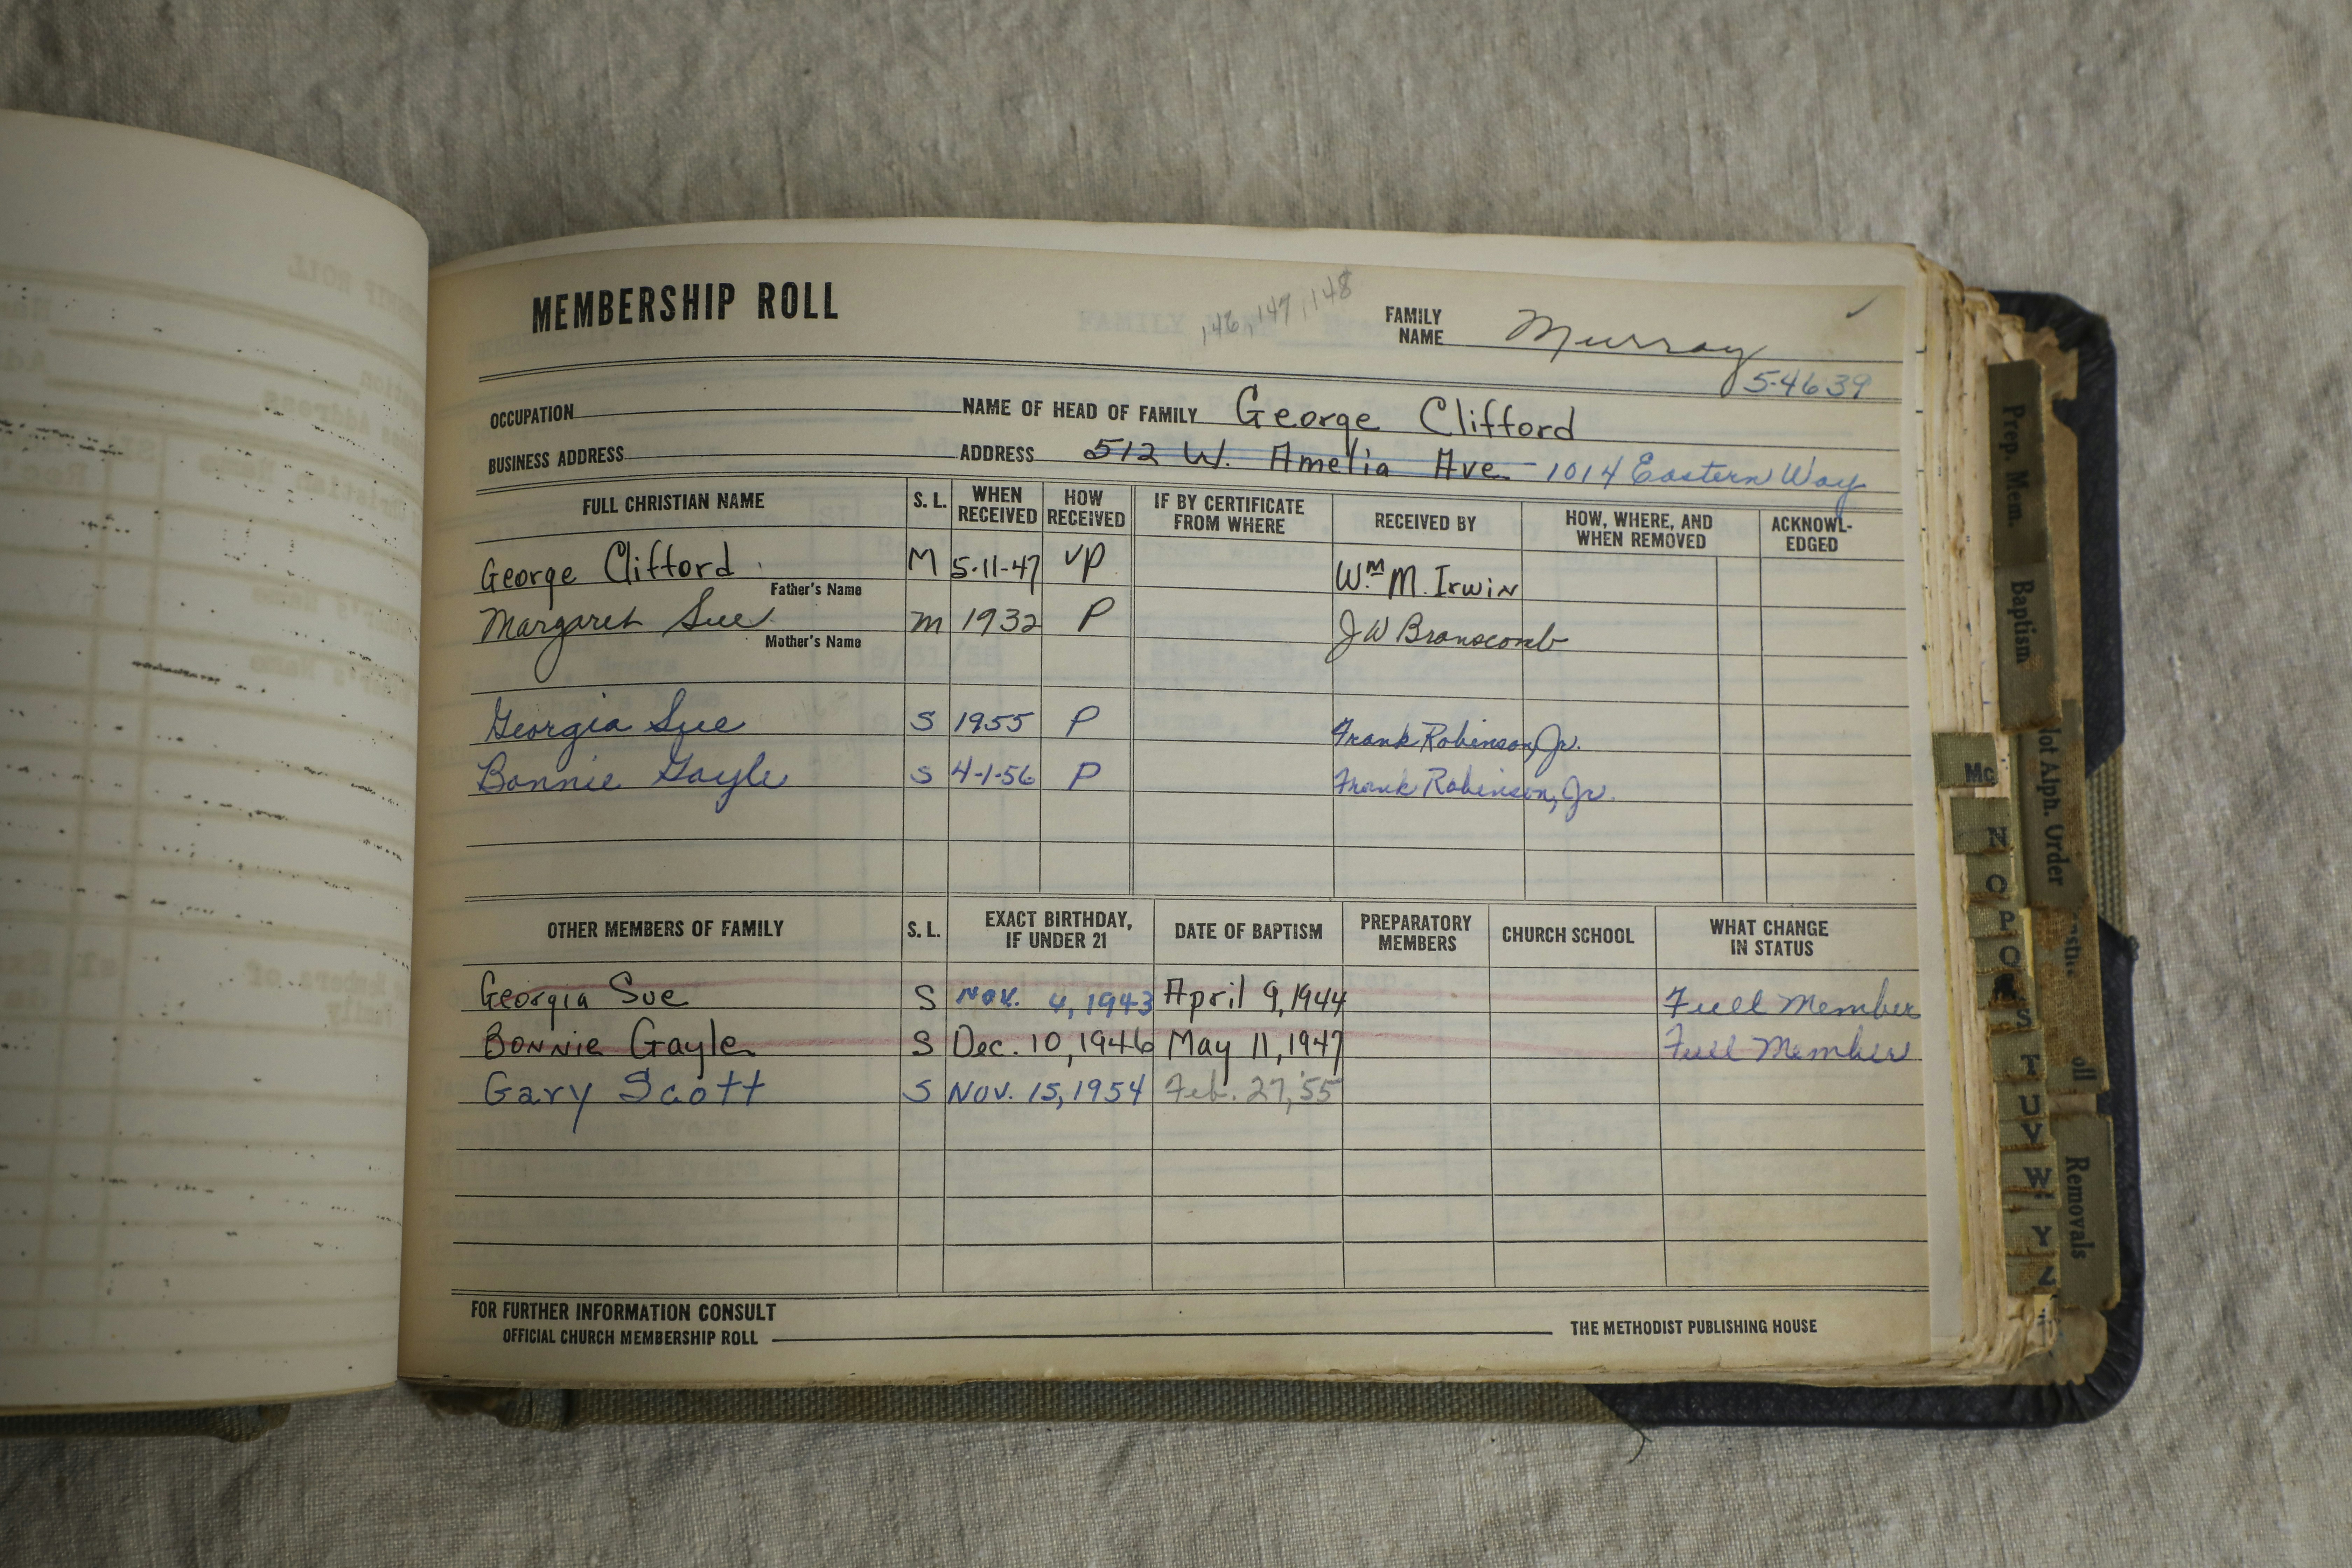 MEMBERSHIP ROLL
146, 147, 148
FAMILY NAME Murray
5-4639
OCCUPATION NAME OF HEAD OF FAMILY George Clifford
BUSINESS ADDRESS ADDRESS 512 W. Amelia Ave 1014 Eastern Way
FULL CHRISTIAN NAME S. L. WHEN RECEIVED HOW RECEIVED IF BY CERTIFICATE FROM WHERE RECEIVED BY HOW, WHERE, AND WHEN REMOVED ACKNOWL-EDGED
George Clifford M 5-11-47 VP Wm M. Irwin
Father's Name
Margaret Sue m 1932 P J W Branscomb
Mother's Name
Georgia Sue S 1955 P Frank Robinson, Jr.
Bonnie Gayle S 4-1-56 P Frank Robinson, Jr.
OTHER MEMBERS OF FAMILY S. L. EXACT BIRTHDAY, IF UNDER 21 DATE OF BAPTISM PREPARATORY MEMBERS CHURCH SCHOOL WHAT CHANGE IN STATUS
Georgia Sue S Nov. 4, 1943 April 9, 1944 Full Member
Bonnie Gayle S Dec. 10, 1946 May 11, 1947 Full Member
Gary Scott S Nov. 15, 1954 Feb. 27, '55
FOR FURTHER INFORMATION CONSULT
OFFICIAL CHURCH MEMBERSHIP ROLL THE METHODIST PUBLISHING HOUSE
Prep. Mem.
Baptism
Alph. Order
Removals
Mc
N
O
P
Q
S
T
U
V
W
Y
Z